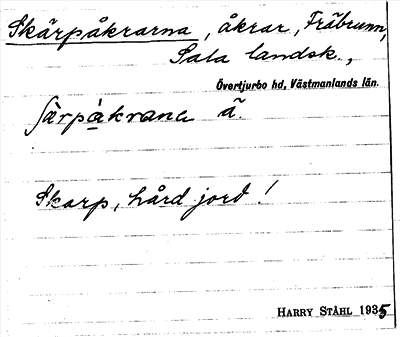 Skärpåkrarna, åkrar, Fräbrunn,
Sala landsk.,
Övertjurbo hd, Västmanlands län.
ʃärpåkrana ã.
Skarp, hård jord!
HARRY STÅHL 1935